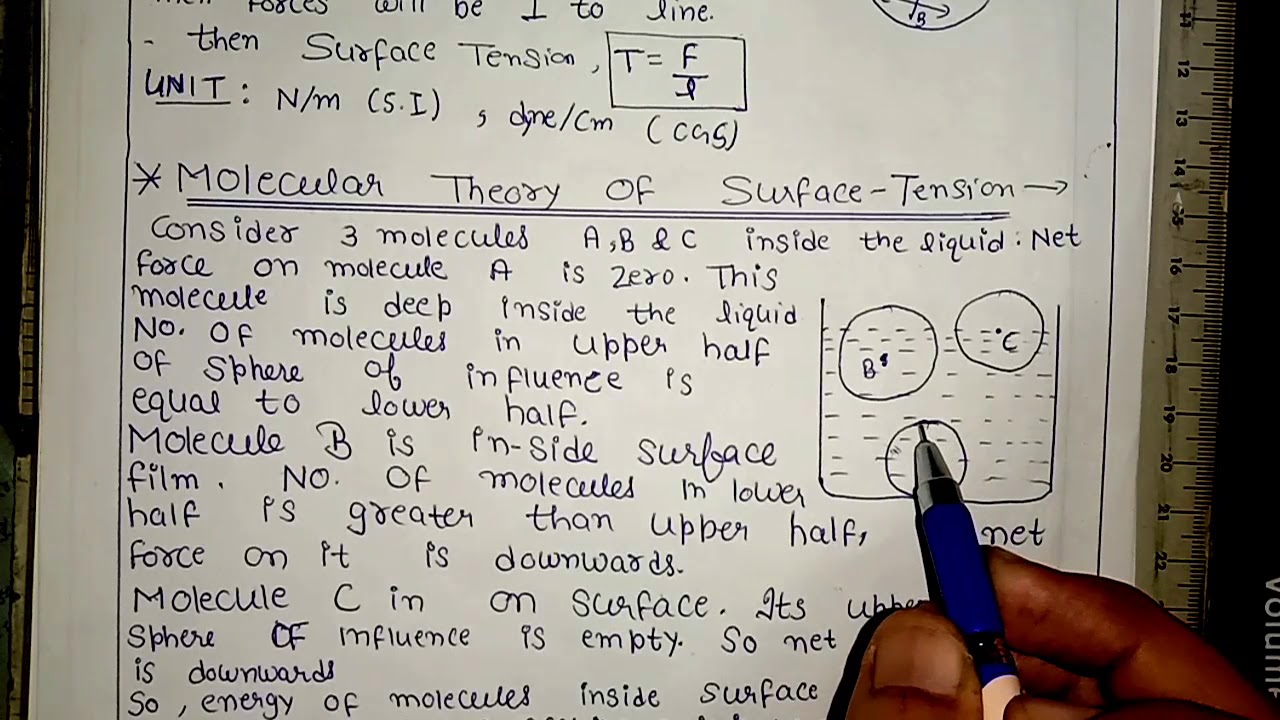 forces will be ⊥ to line.
- then Surface Tension, T = F/l
UNIT : N/m (S.I) , dyne/cm (CGS)
* Molecular Theory OF Surface-Tension →
Consider 3 molecules A,B & C inside the liquid : Net
force on molecule A is zero. This
molecule is deep inside the liquid
No. of molecules in upper half
of sphere of influence is
equal to lower half.
Molecule B is in-side surface
film. No. Of molecules in lower
half is greater than upper half, net
force on it is downwards.
Molecule C in on surface. Its
sphere OF influence is empty. So net
is downwards
So, energy of molecules inside surface
B
B
C
11
12
13
14
15
16
17
18
19
20
21
22